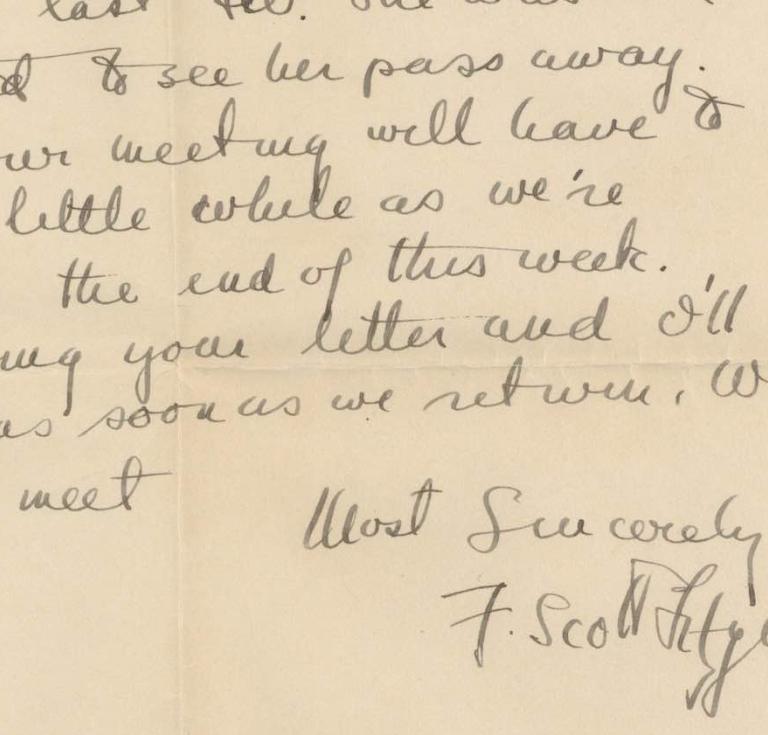 last Feb. She was
to see her pass away.
our meeting will have to
little while as we're
the end of this week.
your letter and I'll
as soon as we return. W
meet
Most Sincerely
F. Scott Fitzge